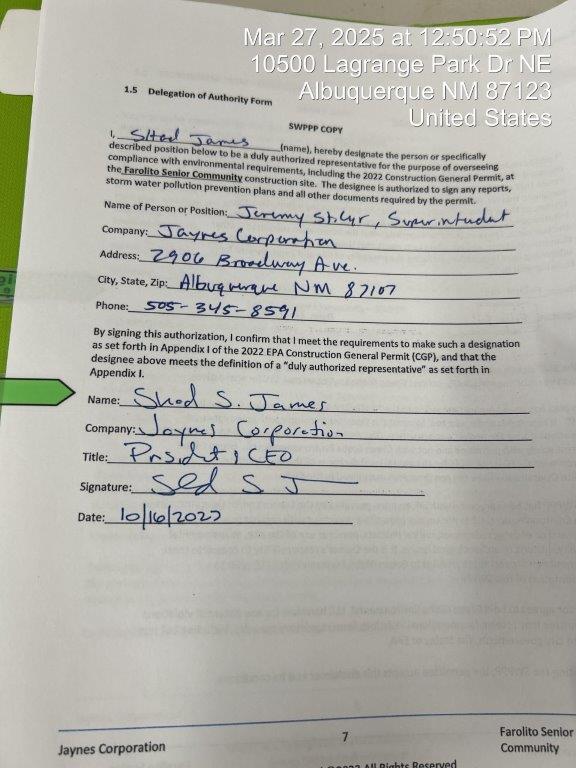 Mar 27, 2025 at 12:50:52 PM
10500 Lagrange Park Dr NE
Albuquerque NM 87123
United States
1.5 Delegation of Authority Form
SWPPP COPY
I, Shad James (name), hereby designate the person or specifically
described position below to be a duly authorized representative for the purpose of overseeing
compliance with environmental requirements, including the 2022 Construction General Permit, at
the Farolito Senior Community construction site. The designee is authorized to sign any reports,
storm water pollution prevention plans and all other documents required by the permit.
Name of Person or Position: Jeremy St.Cyr, Superintendent
Company: Jaynes Corporation
Address: 2906 Broadway Ave.
City, State, Zip: Albuquerque NM 87107
Phone: 505-345-8591
By signing this authorization, I confirm that I meet the requirements to make such a designation
as set forth in Appendix I of the 2022 EPA Construction General Permit (CGP), and that the
designee above meets the definition of a "duly authorized representative" as set forth in
Appendix I.
Name: Shad S. James
Company: Jaynes Corporation
Title: President, CEO
Signature:
Date: 10/16/2023
Jaynes Corporation
7
Farolito Senior
Community
All Rights Reserved